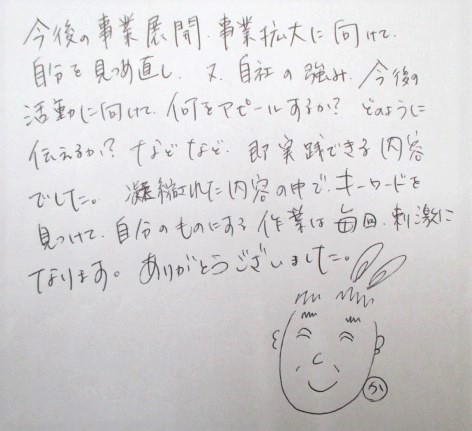 今後の事業展開、事業拡大に向けて、
自分を見つめ直し、又、自社の強み、今後の
活動に向けて、何をアピールするか? どのように
伝えるか? などなど、即実践できる内容
でした。凝縮された内容の中で、キーワードを
見つけて、自分のものにする作業は毎回、刺激に
なります。ありがとうございました。